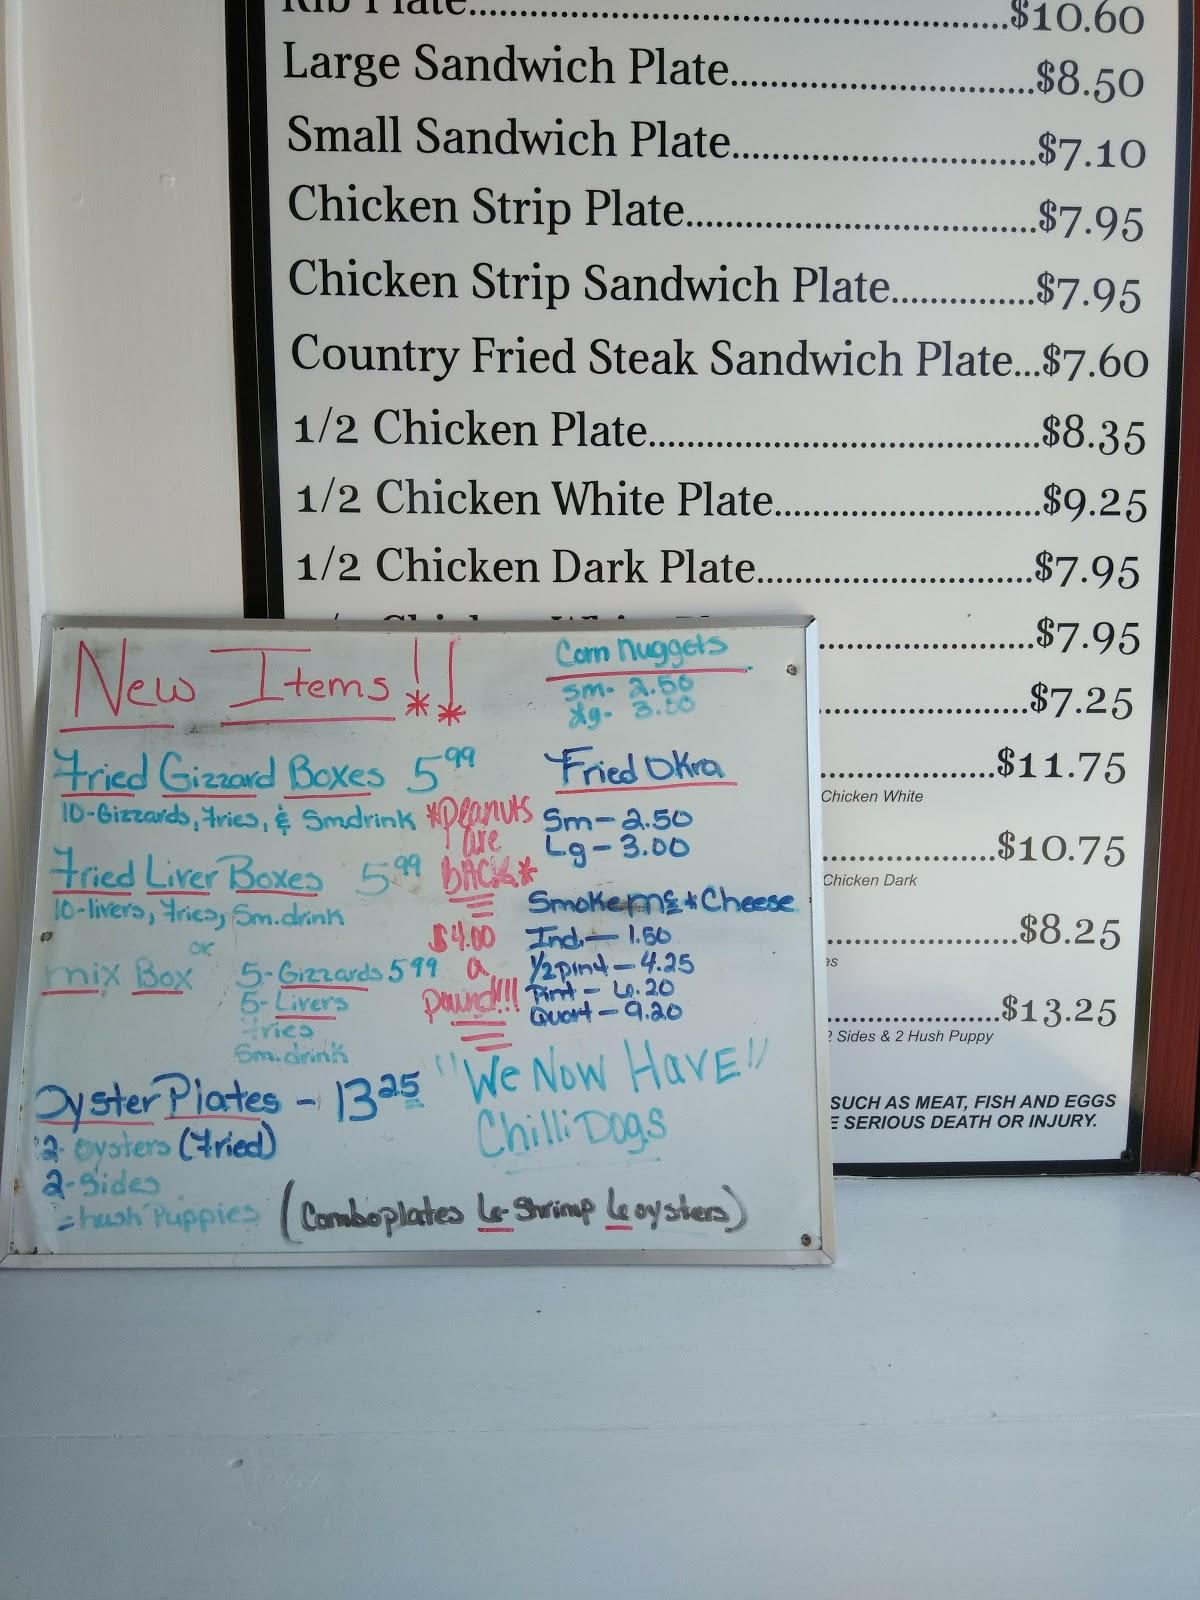 Rib Plate...$10.60
Large Sandwich Plate...$8.50
Small Sandwich Plate...$7.10
Chicken Strip Plate...$7.95
Chicken Strip Sandwich Plate...$7.95
Country Fried Steak Sandwich Plate...$7.60
1/2 Chicken Plate...$8.35
1/2 Chicken White Plate...$9.25
1/2 Chicken Dark Plate...$7.95
...$7.95
...$7.25
...$11.75
Chicken White
...$10.75
Chicken Dark
...$8.25
...$13.25
2 Sides & 2 Hush Puppy
SUCH AS MEAT, FISH AND EGGS
SERIOUS DEATH OR INJURY.
New Items!!
Fried Gizzard Boxes 5 99
10-Gizzards, fries, & Sm drink
Fried Liver Boxes 5 99
10-livers, fries, Sm. drink
or
mix Box 5-Gizzards 5 99
5-Livers
fries
Sm. drink
Oyster Plates - 13 25
oysters (Fried)
2-Sides
hush Puppies
(Combo plates 6-Shrimp 6 oysters)
*Peanuts
are
BACK*
$4.00
a
pound!!!
Corn Nuggets
Sm- 2.50
Lg- 3.00
Fried Okra
Sm-2.50
Lg-3.00
Smoke Mc & Cheese
Ind.-1.50
1/2 pint-4.25
Pint-6.20
Quart-9.20
"We Now Have"
Chilli Dogs